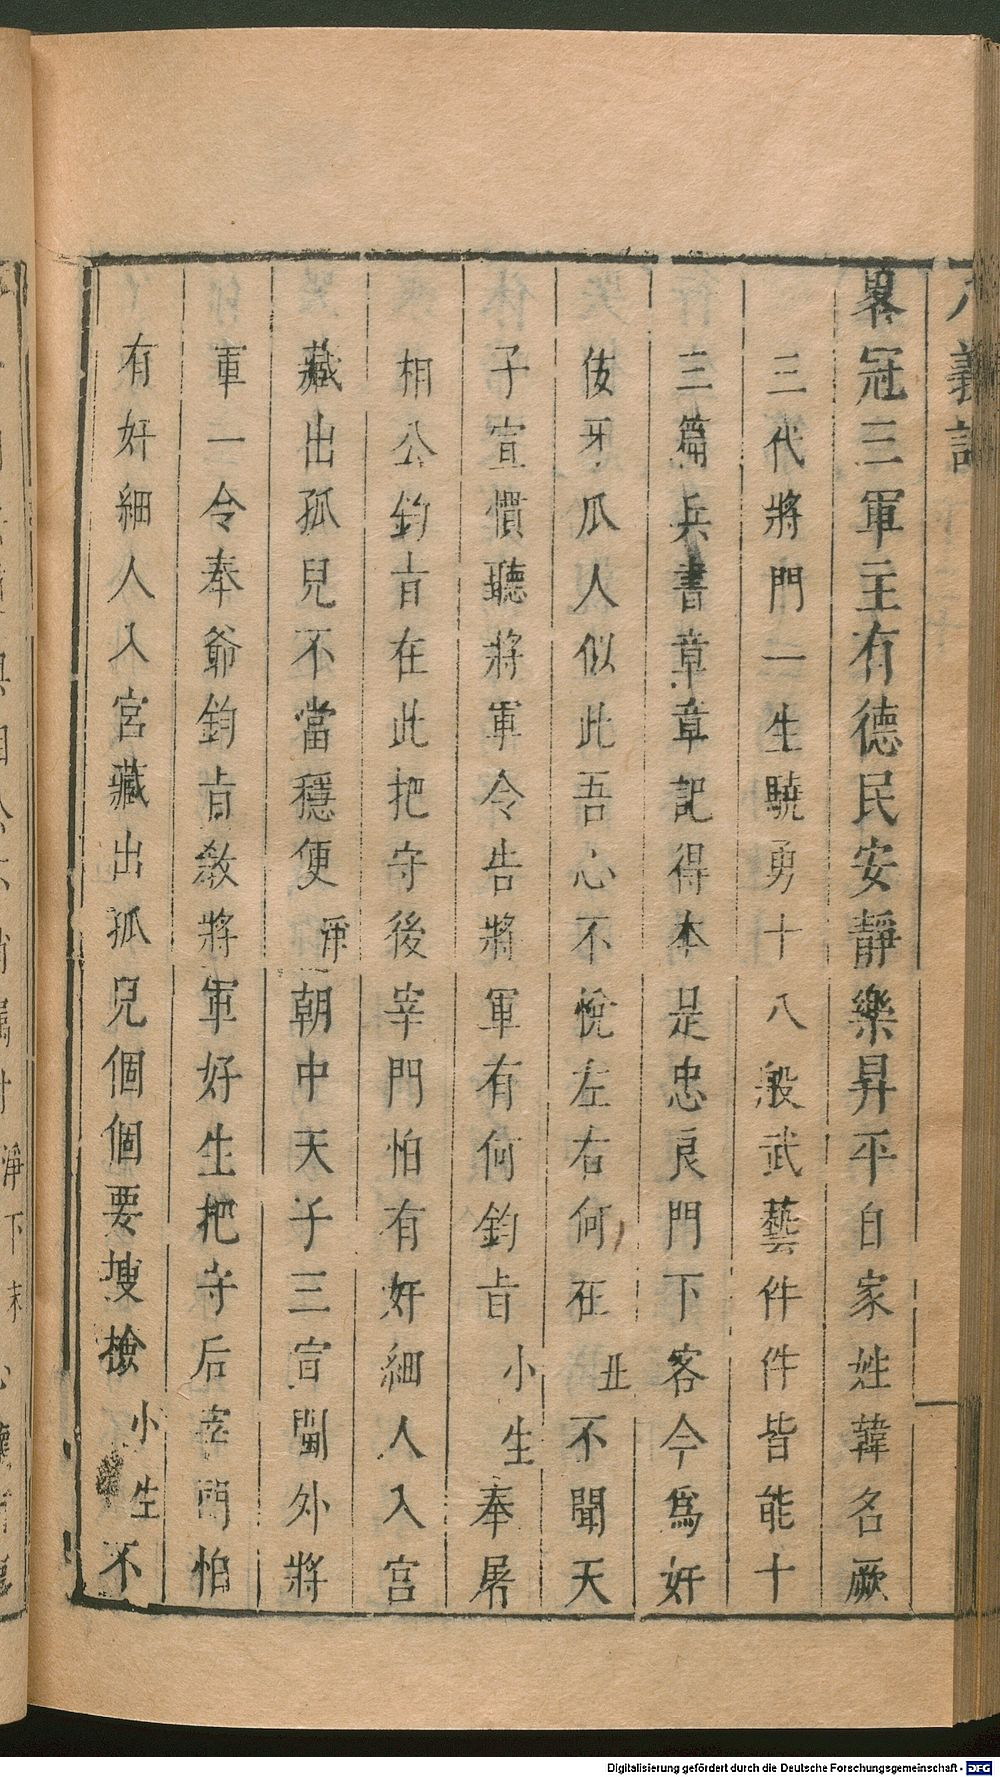 八義記
畧冠三軍主有德民安靜樂昇平自家姓韓名厥
三代將門一生驍勇十八般武藝件件皆能十
三篇兵書章章記得本是忠良門下客今爲奸
伎牙瓜人似此吾心不悅左右何在丑不聞天
子宣慣聽將軍令告將軍有何鈞旨小生奉屠
相公鈞旨在此把守後宰門怕有奸細人入宮
藏出孤兒不當穩便淨朝中天子三宣閫外將
軍一令奉爺鈞旨敎將軍好生把守后宰門怕
有奸細人入宮藏出孤兒個個要搜檢小生不
淨下末
Digitalisierung gefördert durch die Deutsche Forschungsgemeinschaft - DFG